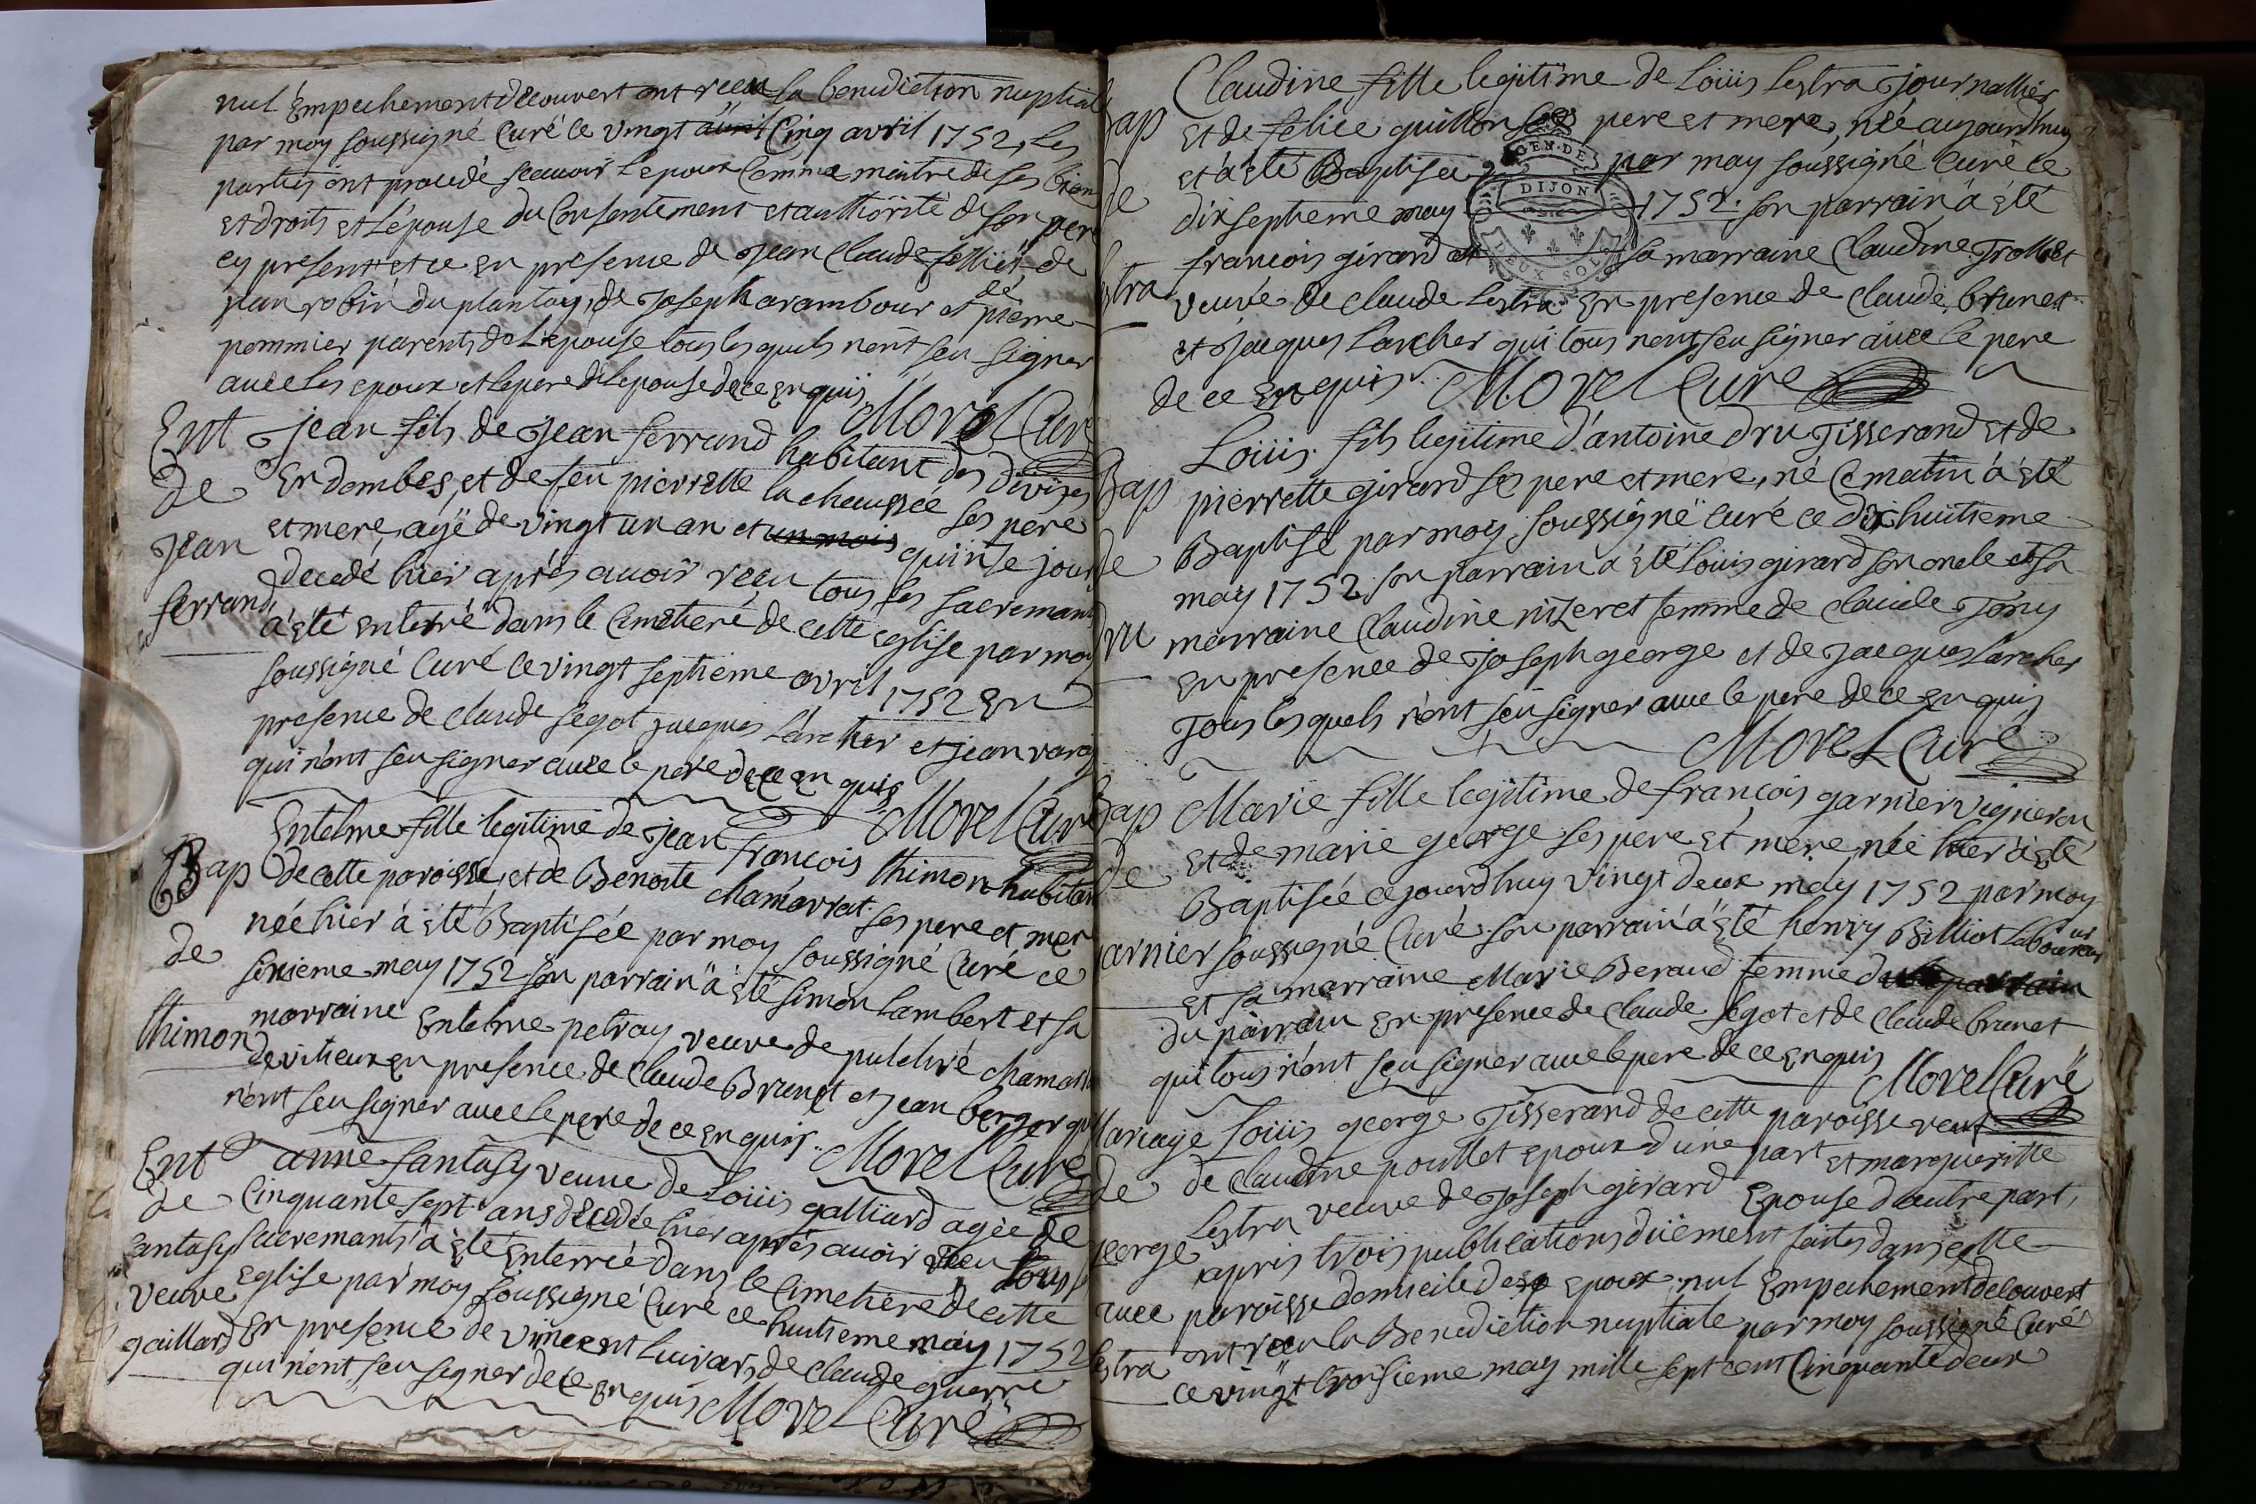 nul Empechement decouvert ont recu la benediction nuptiale
par moy soussigné Curé ce vingt Cinq avril 1752, Les
parties ont procedé scauoir L'epoux Comme maitre de ses biens
et droits et L'epouse du Consentement et authorité de son pere
cy present et ce En presence de Jean Claude de
jean robin du plantay, de Joseph arambour et de pierre
pommier parents de L'epouse tous les quels n'ont seu signer
auec les epoux et le pere de L'epouse de ce Enquis
Morel Curé
Ent Jean fils de Jean ferrand habitant des
de En dombes, et de feu pierrette la chaussée ses pere
Jean et mere, agé de vingt un an et un mois quinse jours
ferrand decedé hier aprés auoir recu tous les sacremants
a été enterré dans le Cimetiere de cette eglise par moy
soussigné Curé ce vingt septieme avril 1752 En
presence de claude segot jacques Larcher et jean
qui n'ont seu signer auec le pere de ce en quis
Morel Curé
Entelme fille legitime de Jean francois thimon habitant
Bap de cette paroisse, et de Benoite chamarrat ses pere et mere
de née hier à été Baptisée par moy soussigné Curé ce
thimon sixieme may 1752 son parrain a été simon Lambert et sa
marraine Entelme petray veuve de pulchre
de vilieux en presence de Claude Brunet et jean berger qui
n'ont seu signer auec le pere de ce Enquis. Morel Curé
Ent anne fantasy veuue de Loüis galliard agée de
de Cinquante sept ans decedée hier aprés auoir recu tous les
fantasy sacremants a été Enterrée dans le Cimetiere de cette
veuve Eglise par moy soussigné Curé ce huitieme may 1752
gaillard En presence de vincent de claude guerre
qui n'ont seu signer de ce Enquis Morel Curé
Claudine fille legitime de Loüis Lestra Journallier
Bap et de felice guillon ses pere et mere, née aujourdhuy
et a été Baptisée par moy soussigné Curé ce
de dix septieme may 1752. son parrain a été
francois girard et sa marraine Claudine Trollliet
Lestra veuve de claude Lestra En presence de claude brunet
et Jacques Larcher qui tous n'ont seu signer auec le pere
de ce Enquis. Morel Curé
GEN. DE
DIJON
DEUX SOLS
Loüis fils legitime d'antoine dru Tisserand et de
Bap pierrette girard ses pere et mere, né ce matin à été
de Baptisé par moy soussigné Curé ce dix huitieme
may 1752 son parrain a été Louis girard son oncle et sa
dru marraine Claudine nizeret femme de claude Tony
En presence de Joseph george et de Jacques Larcher
Tous les quels n'ont seu signer auec le pere de ce Enquis
Morel Curé
Bap Marie fille legitime de françois garnier vigneron
de et de marie george ses pere et mere, née hier à été
Baptisée cejourdhuy vingt deux may 1752 par moy
garnier soussigné Curé. son parrain a été henry Billiot Laboureur
et sa marraine Marie Beraud femme du parrain
du parrain En presence de claude segot et de claude brunet
qui tous n'ont seu signer auec le pere de ce enquis
Morel Curé
Mariage Loüis george Tisserand de cette paroisse veuf
de de Claudine poullet epoux d'une part et margueritte
Lestra veuve de Joseph girard Epouse d'autre part,
george aprés trois publications duëment faites dans cette
auec paroisse domicile des Epoux nul Empechement decouvert
Lestra ont recu la Benediction nuptiale par moy soussigné Curé
ce vingt troisieme may mille sept cent Cinquante deux